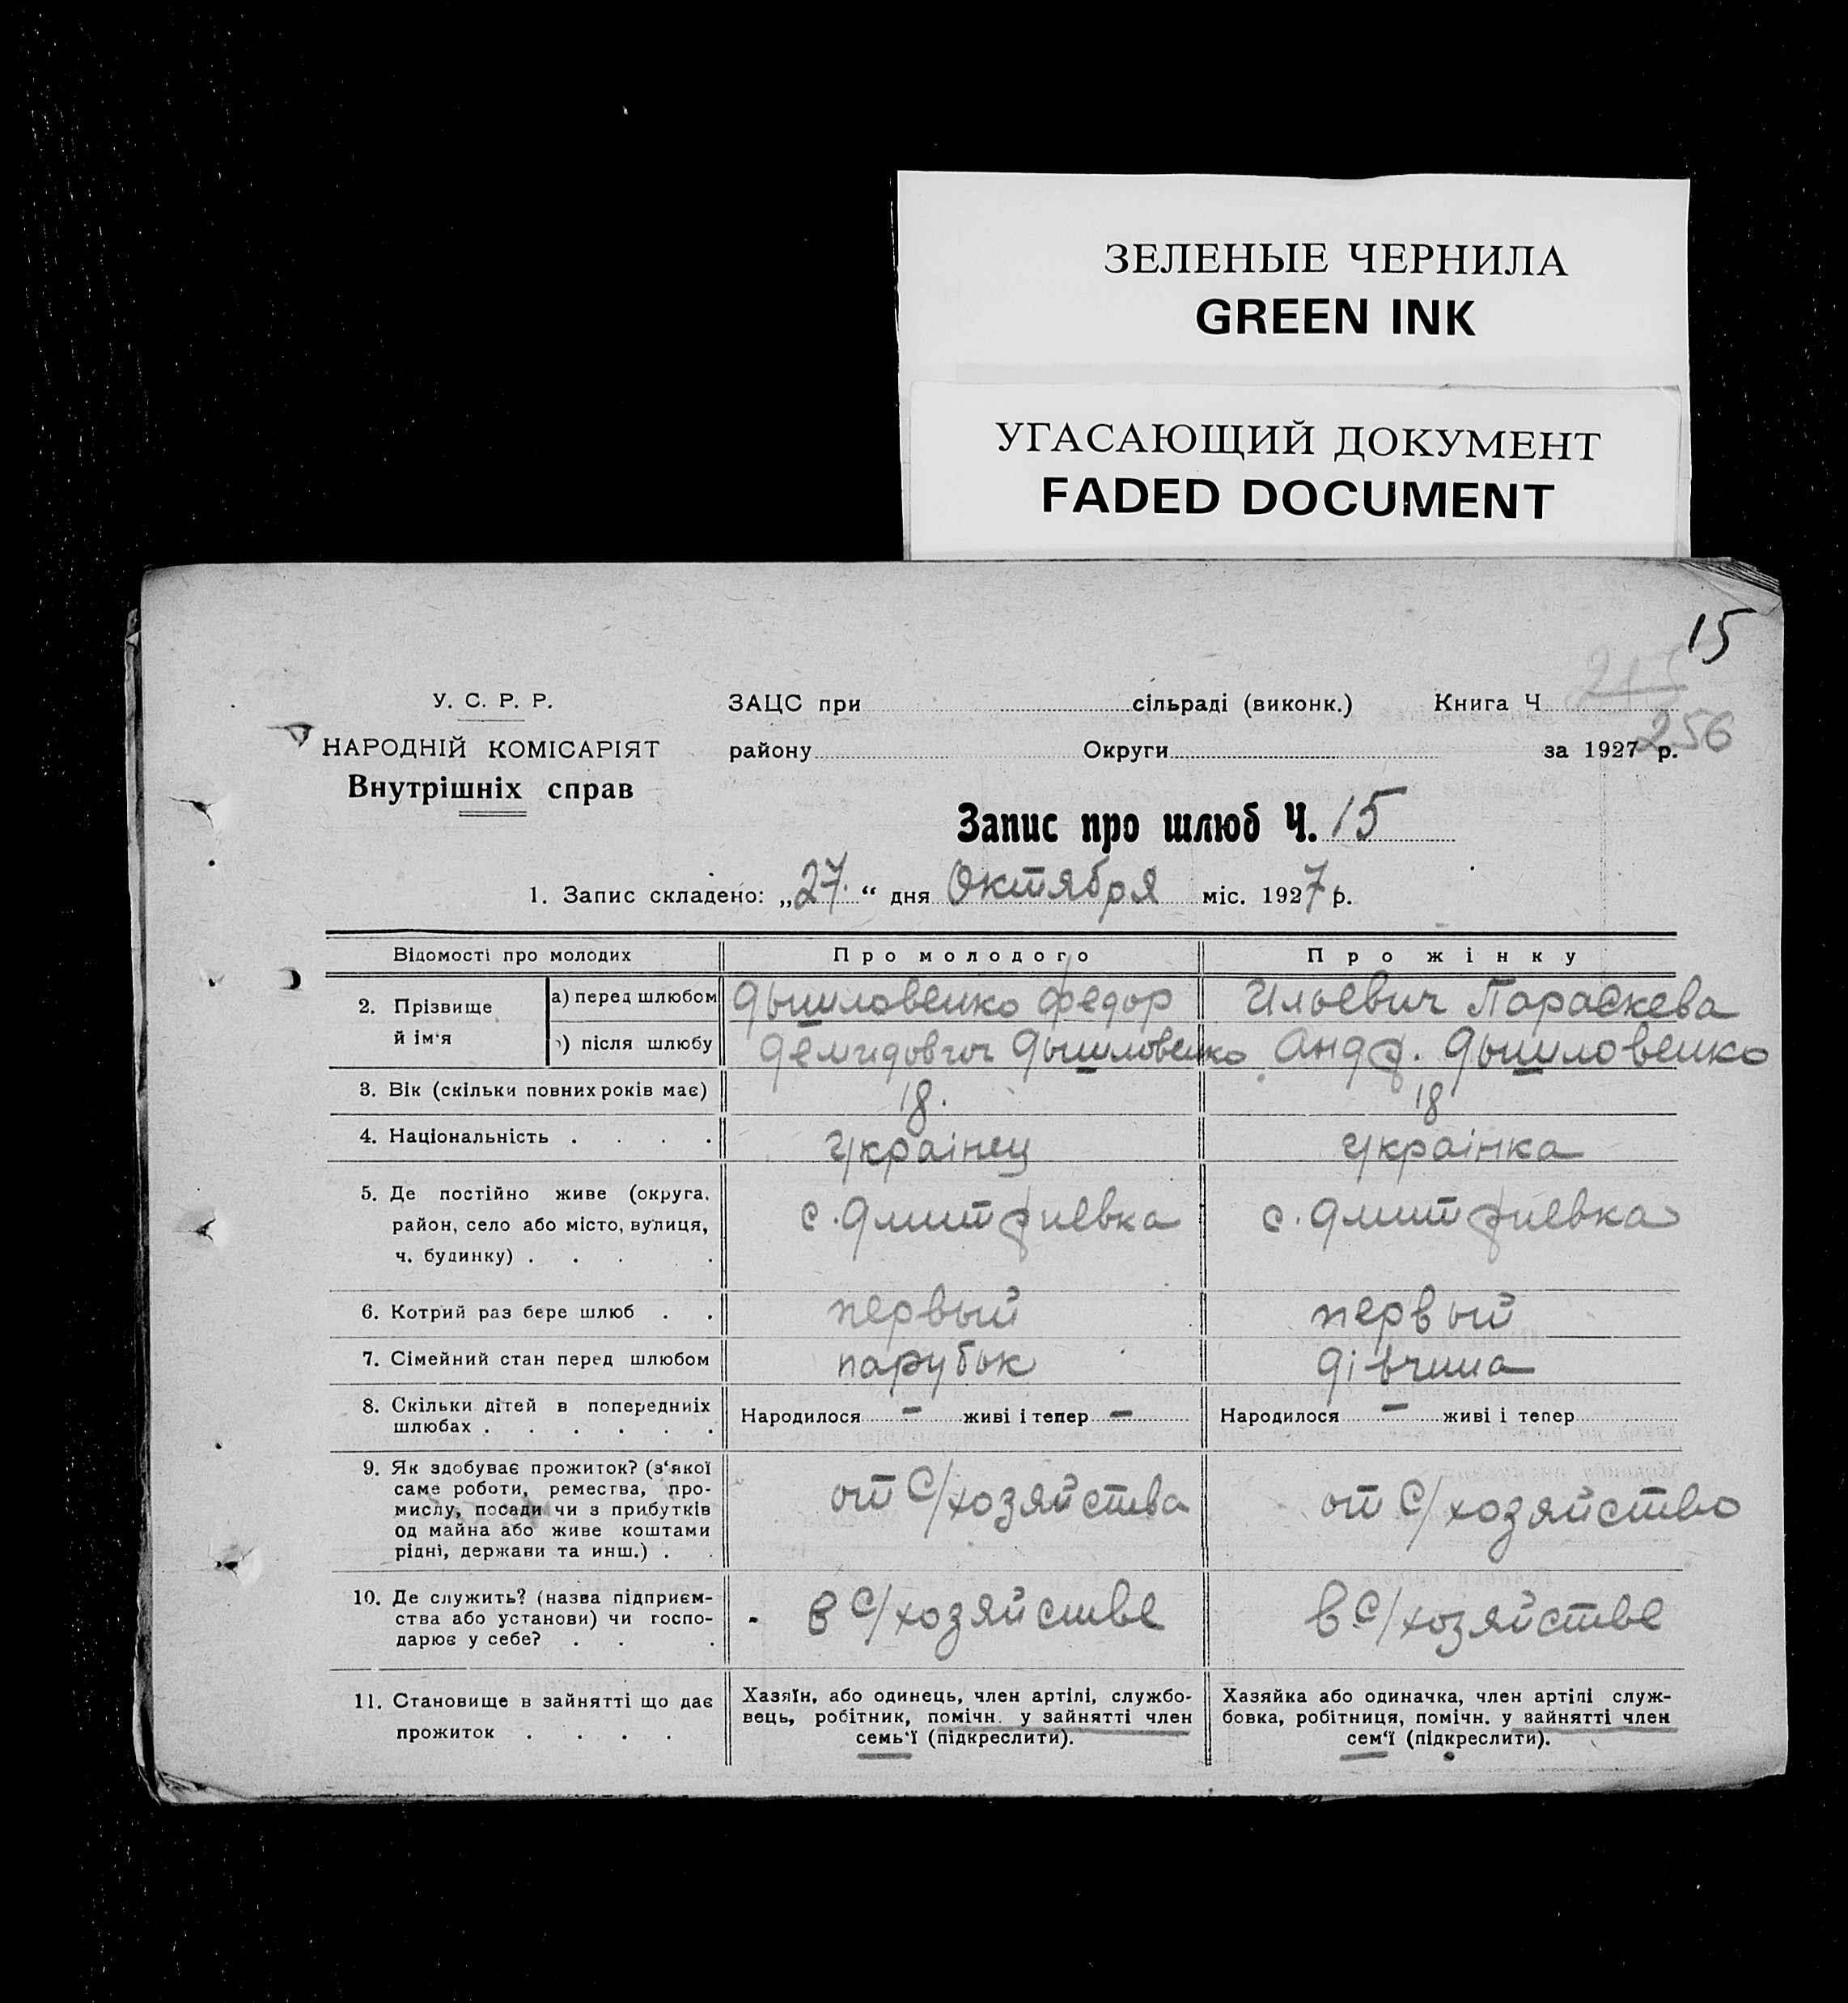 ЗЕЛЕНЫЕ ЧЕРНИЛА
GREEN INK
УГАСАЮЩИЙ ДОКУМЕНТ
FADED DOCUMENT
15
У. С. Р. Р.
НАРОДНІЙ КОМІСАРІЯТ
Внутрішніх справ
ЗАЦС при сільраді (виконк.) Книга Ч
256
району Округи за 1927 р.
Запис про шлюб Ч. 15
1. Запис складено: „27." дня Октября міс. 1927 р.
Відомості про молодих Про молодого Про жінку
2. Прізвище й ім'я
а) перед шлюбом Дышловенко Федор Ильевич Параскева
) після шлюбу Демидович Дышловенко Андр. Дышловенко
3. Вік (скільки повних років має) 18. 18
4. Національність . . . . Украінец Украінка
5. Де постійно живе (округа, район, село або місто, вулиця, ч. будинку) . . . с. Дмитриевка с. Дмитриевка
6. Котрий раз бере шлюб . . первый первый
7. Сімейний стан перед шлюбом парубок дівчина
8. Скільки дітей в попередніх шлюбах . . . . . . Народилося – живі і тепер – Народилося – живі і тепер
9. Як здобуває прожиток? (з'якої
саме роботи, ремества, про-
мислу, посади чи з прибутків
од майна або живе коштами
рідні, держави та инш.) . .
от с/хозяйства от с/хозяйство
10. Де служить? (назва підприєм-
ства або установи) чи госпо-
дарює у себе? . . .
в с/хозяйстве в с/хозяйстве
11. Становище в зайнятті що дає
прожиток . . . .
Хазяїн, або одинець, член артілі, службо-
вець, робітник, помічн. у зайнятті член
семь'ї (підкреслити).
Хазяйка або одиначка, член артілі служ-
бовка, робітниця, помічн. у зайнятті член
сем'ї (підкреслити).